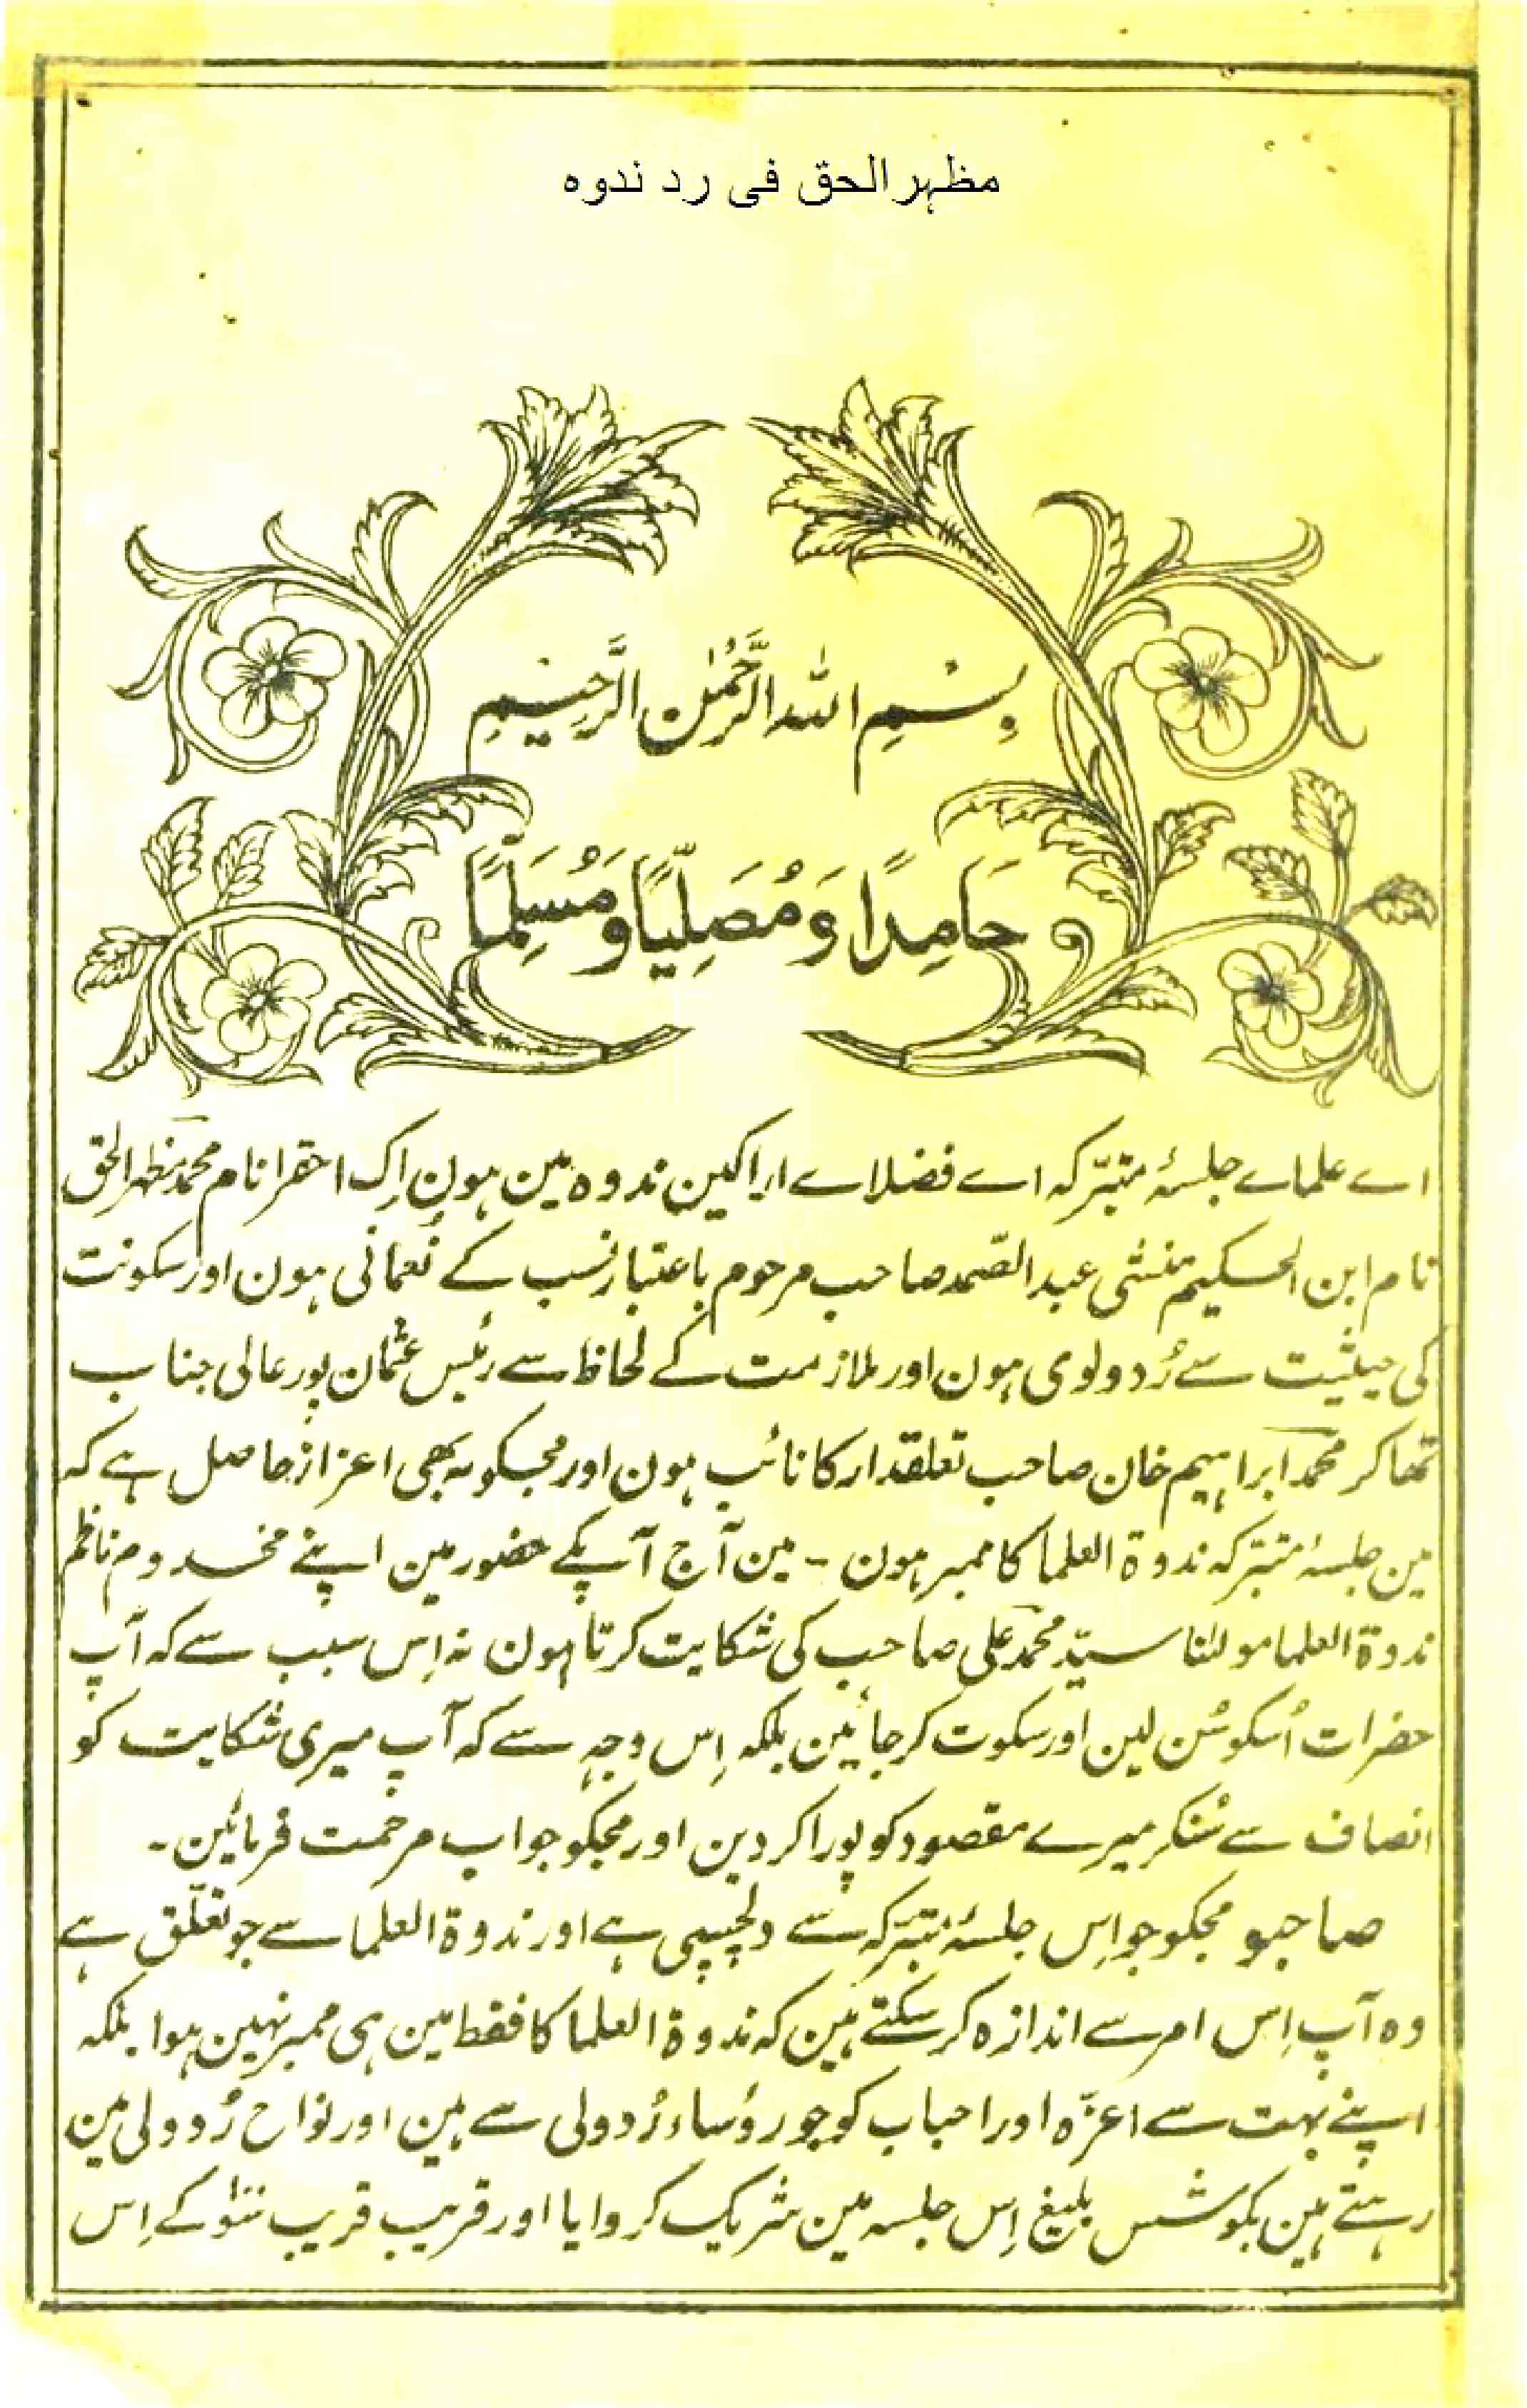 مظہرالحق فی رد ندوہ
بِسْمِ اللهِ الرَّحْمٰنِ الرَّحِيْمِ
حَامِدًا وَّمُصَلِّيًا وَّمُسَلِّمًا
اے علماے جلسۂ متبرّکہ اے فضلاے اراکین ندوہ مین ہون اِک احقر انام محمد مظہر الحق
نام ابن الحکیم منشی عبد الصّمد صاحب مرحوم باعتبار نسب کے نُعمانی ہون اور سکونت
کی حیثیت سے رُدولوی ہون اور ملازمت کے لحاظ سے رئیس عثمان پور عالی جناب
ٹھاکر محمد ابراہیم خان صاحب تعلقدار کا نائب ہون اور مجکو یہ بھی اعزاز حاصل ہے کہ
مین جلسۂ متبرّکہ ندوۃ العلما کا ممبر ہون - مین آج آپکے حضور مین اپنے مخدوم ناظم
ندوۃ العلما مولٰنا سیّد محمد علی صاحب کی شکایت کرتا ہون نہ اِس سبب سے کہ آپ
حضرات اُسکو سُن لین اور سکوت کر جائین بلکہ اِس وجہ سے کہ آپ میری شکایت کو
انصاف سے سُنکر میرے مقصود کو پورا کر دین اور مجکو جواب مرحمت فرمائین۔
صاحبو مجکو جو اِس جلسۂ متبرّکہ سے دلچسپی ہے اور ندوۃ العلما سے جو تعلّق ہے
وہ آپ اِس امر سے اندازہ کر سکتے ہین کہ ندوۃ العلما کا فقط مین ہی ممبر نہین ہوا بلکہ
اپنے بہت سے اعزّہ اور احباب کو جو روُساء رُدولی سے ہین اور نواح رُدولی مین
رہتے ہین بکوشش بلیغ اِس جلسہ مین شریک کروایا اور قریب قریب سَو کے اِس